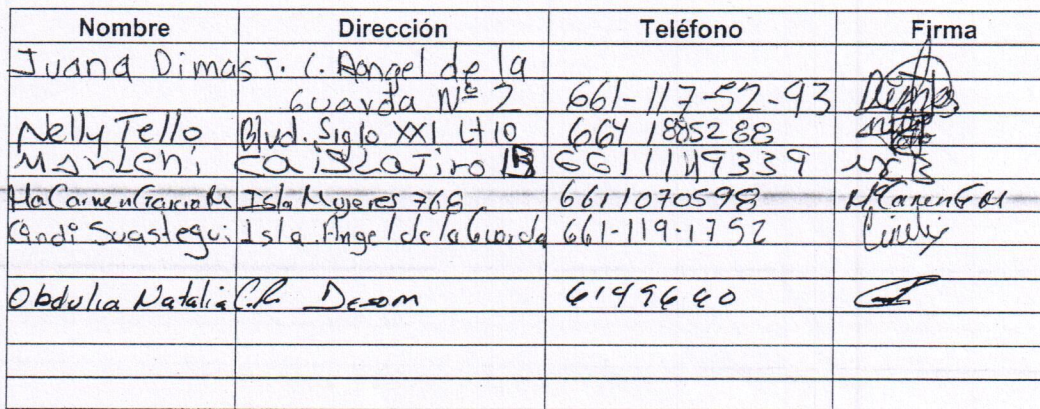 Nombre Dirección Teléfono Firma
Juana Dimas T. C. Aangel de la
Guarda Nº 2 661-117-52-93
Nelly Tello Blvd. Siglo XXI Lt 10 664 1885288
Marleni 6611149339
Ma Carmen Garcia M Isla Mujeres 768 6611070598 Mª Carmen G M
Cindi Suastegui Isla Angel de la Guarda 661-119-1752 Cindi
Obdulia Natalia C.R. 6149640